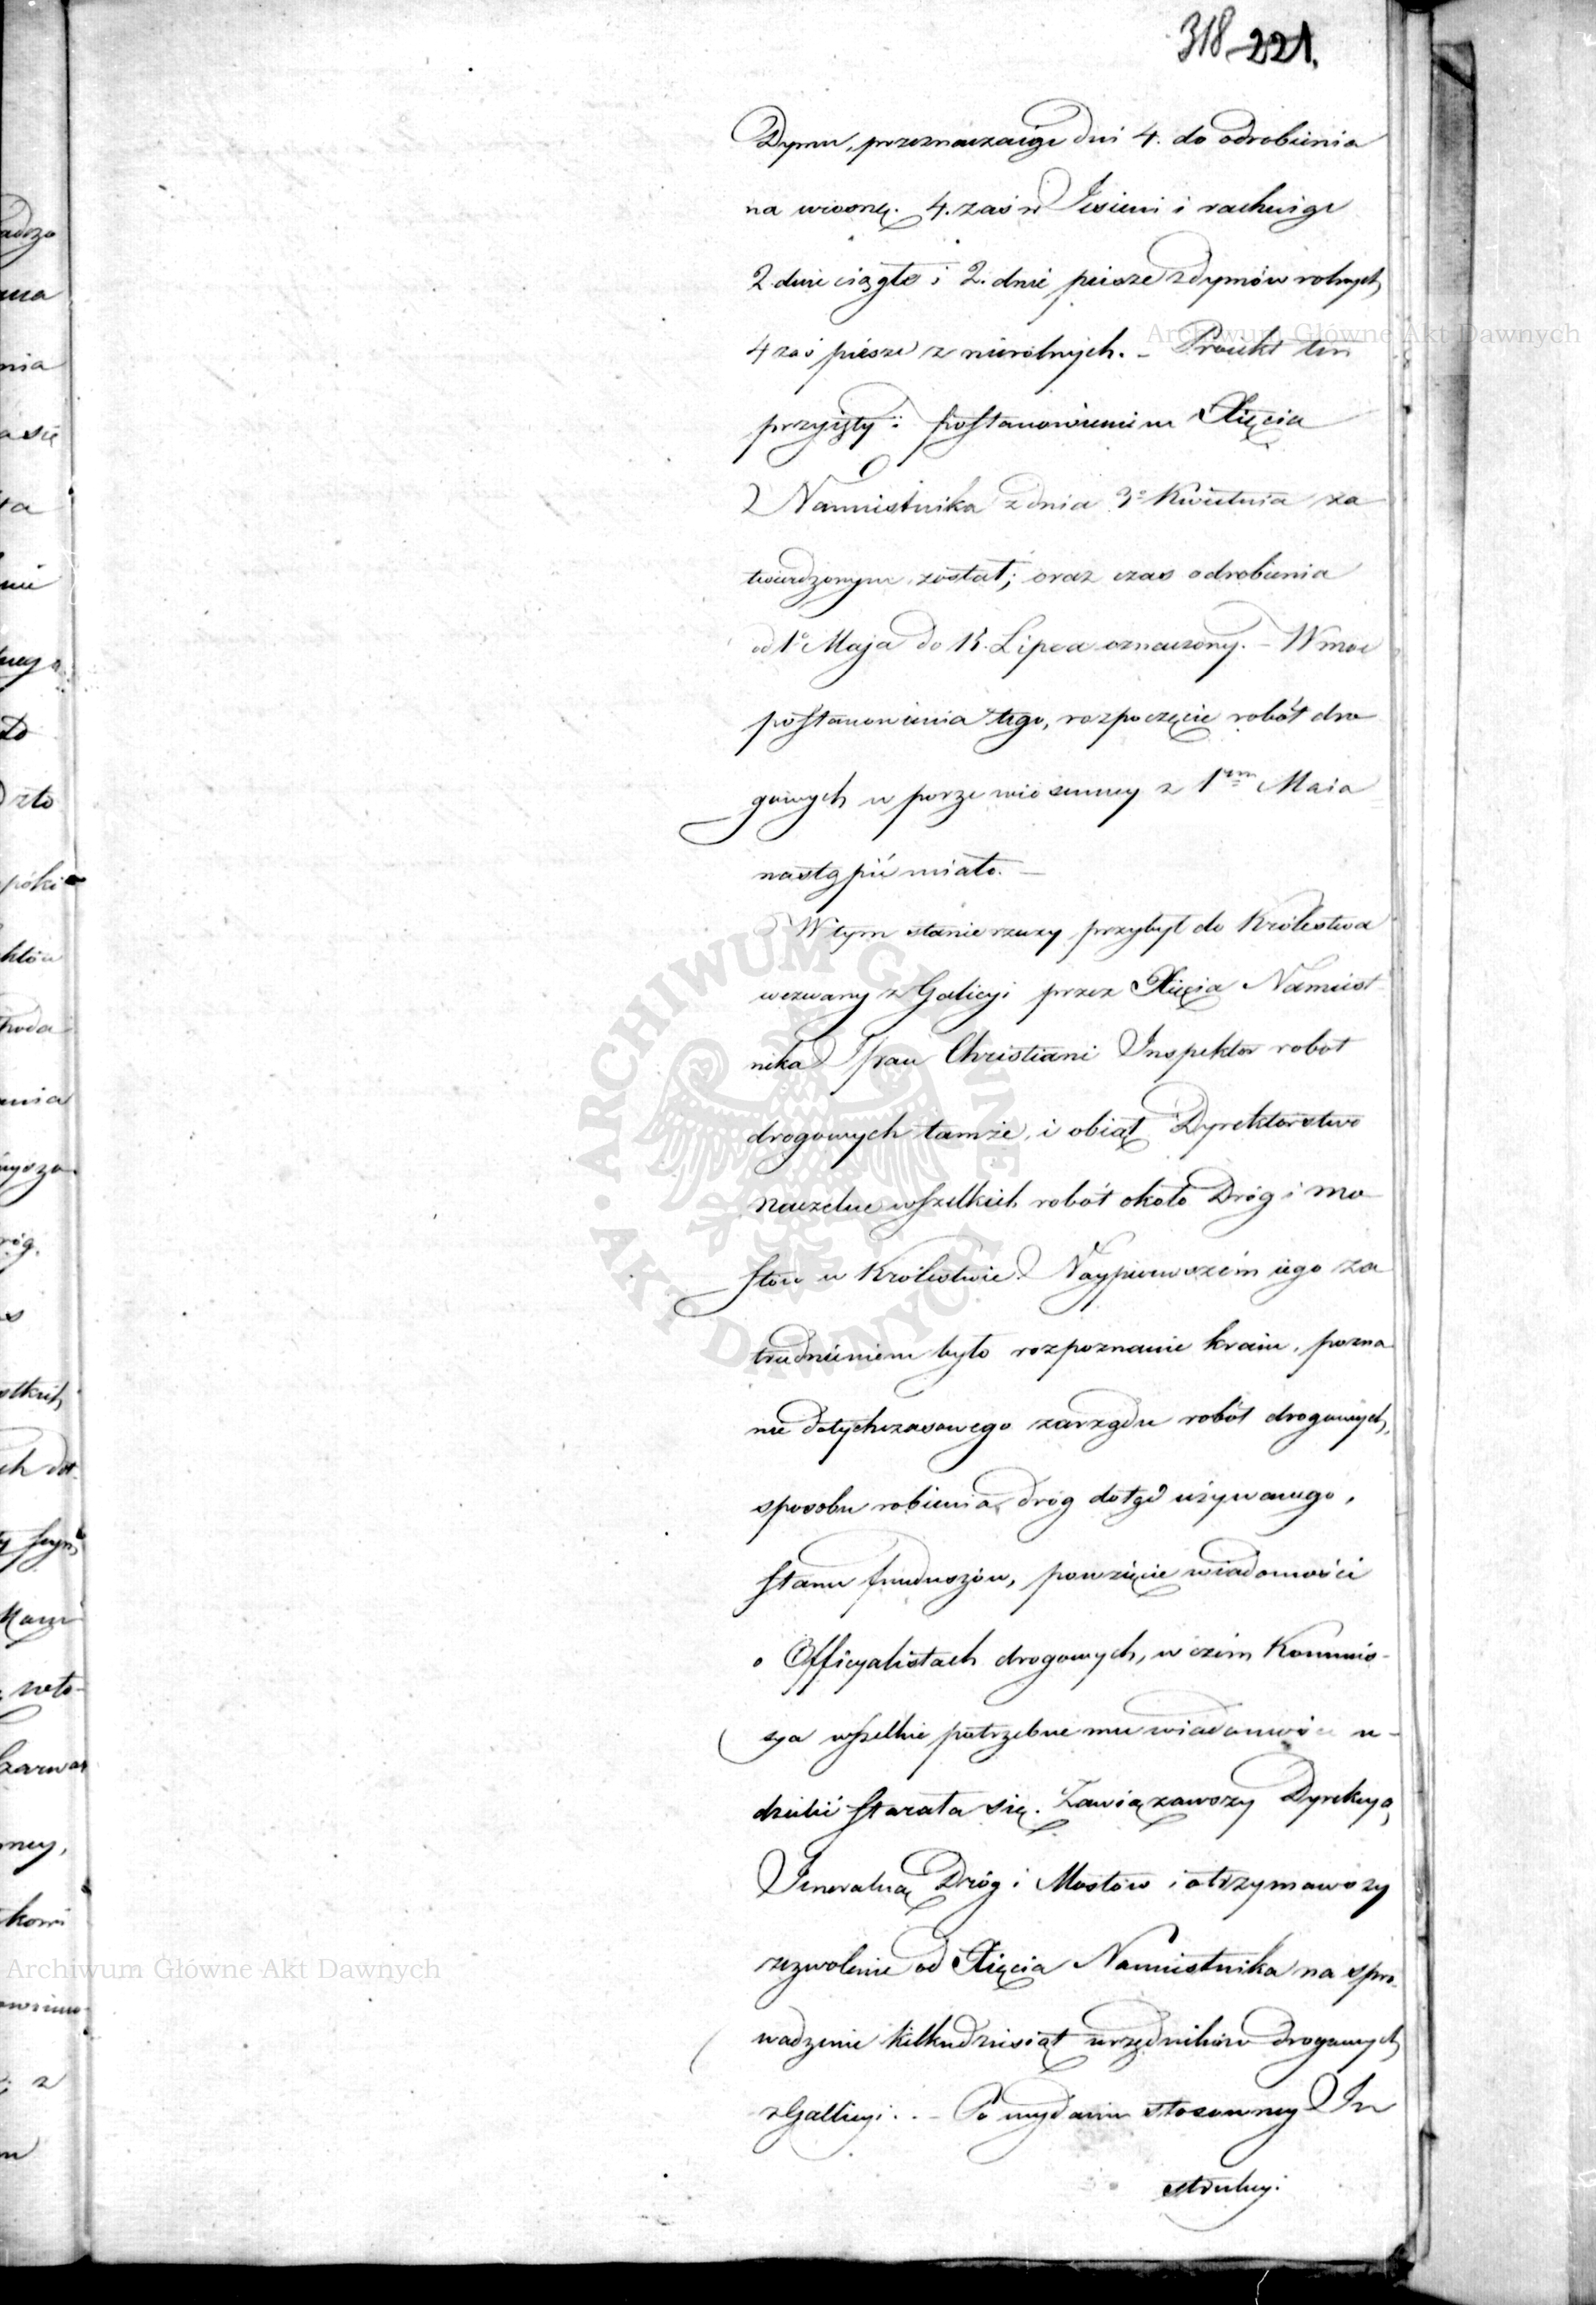 318 221.
Dymu, przeznaczaiąc dni 4. do odrobienia
na wiosnę. 4. zaś w Jesieni i rachuiąc
2. dnie ciągłe i 2. dnie piesze z dymów rolnych,
4 zaś piesze z nierolnych. – Proiekt ten
przyięty i postanowieniem Xięcia
Namiestnika z dnia 3° Kwietnia za
twierdzonym został; oraz czas odrobienia
od 1° Maja do 15. Lipca oznaczony. – W moc
postanowienia tego, rozpoczęcie robót dro
gowych w porze wiosenney z 1ym Maia
nastąpić miało. –
W tym stanie rzeczy przybył do Królestwa
wezwany z Galicyi przez Xięcia Namiest
nika Pan Christiani Inspektor robot
drogowych tamże, i obiął Dyrektorstwo
Naczelne wszelkich robót około Dróg i mo
stów w Królestwie. Naypierwszém iego za
trudnieniem było rozpoznanie kraiu, pozna
nie dotychczasowego zarządu robót drogowych,
sposobu robienia dróg dotąd używanego,
stanu funduszów, powzięcie wiadomości
o Officyalistach drogowych, w czém Kommis-
sya wszelkie potrzebne mu wiadomości u-
dzielić starała się. Zawiązawszy Dyrekcyą
Jeneralną Dróg i Mostów i otrzymawszy
zezwolenie od Xięcia Namiestnika na spro-
wadzenie kilkudziesiąt urzędników drogowych
z Gallicyi. . – Po wydaniu stosowney In
strukcyi
Archiwum Główne Akt Dawnych
Archiwum Główne Akt Dawnych
ARCHIWUM GŁÓWNE AKT DAWNYCH